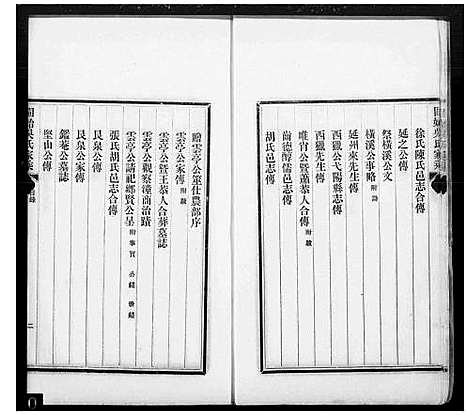 徐氏陳氏邑志合傳
延之公傳
祭橫溪公文
橫溪公事略 附詩
延州來先生傳
西獻公弋陽縣志傳
西獻先生傳
唯宥公暨蕭恭人合傳 附裁
齒德醇儒邑志傳
胡氏邑志合傳
贈雲亭公筮仕農部序
雲亭公家傳 附裁
雲亭公暨王恭人合葬墓誌
雲亭公觀察漳南治蹟
雲亭公請祀鄉賢公呈 附事實
張氏胡氏邑志合傳
艮泉公傳
艮泉公家傳
鑑菴公墓誌
堅山公傳
二
0